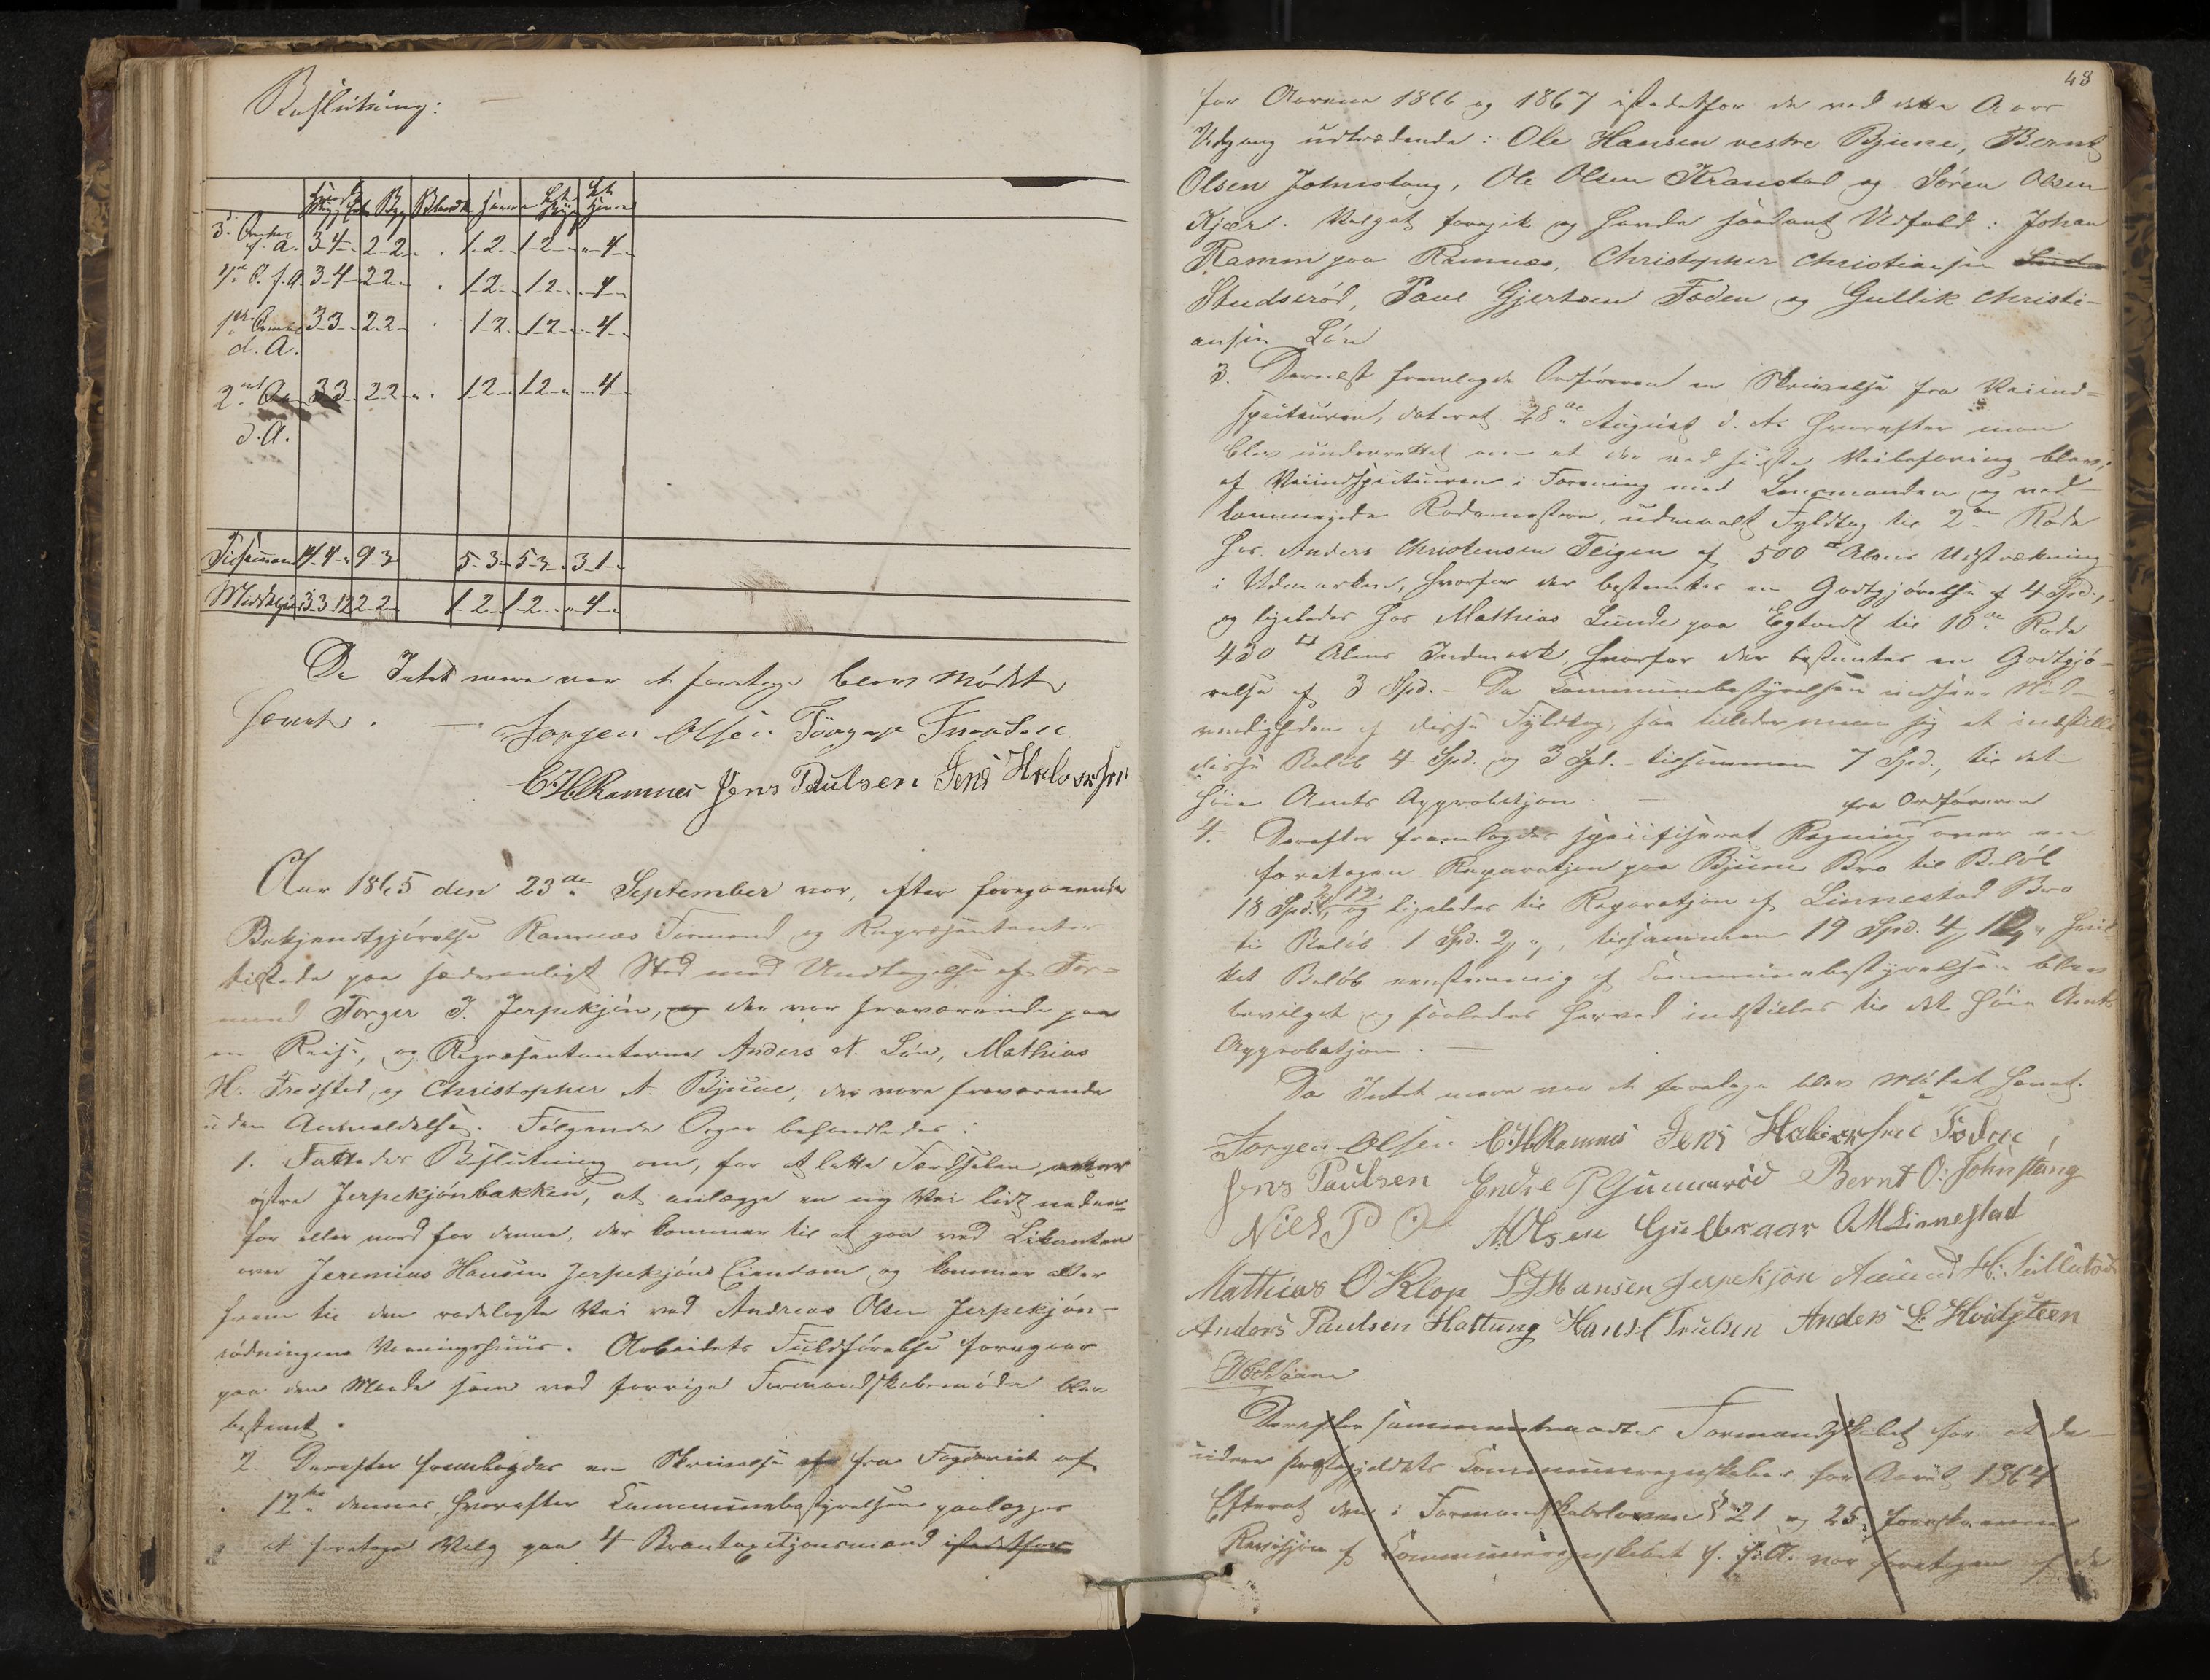 Beslutning:
Byg Blandk. Havre
3. Onsdag f. A. 3-4- 2-2- " 1-2- 1-2- "-4-
f. A. 3-4- 2-2- " 1-2- 1-2- "-4-
1ste 3-3- 2-2- " 1-2- 1-2- "-4-
d. A.
2den 3-3- 2-2- " 1-2- 1-2- "-4-
d. A.
Tilsammen 14-4- 9-3 5-3- 5-3- 3-1-
Middelpriis 3-3-12 2-2- 1-2- 1-2- "-4-
Da Intet mere var at foretage blev Mødet
hævet. — Jørgen Olsen
CHRamnes Jens Paulsen Jens Halvorsen
Aar 1865 den 23de September var, efter foregaaende
Bekjendtgjørelse Ramnæs Formænd og Repræsentanter
tilstede paa sædvanligt Sted med Undtagelse af For-
mand Torger J. Jerpekjøn, og der var fraværende paa
en Reise, og Repræsentanterne Anders N. Løn, Mathias
H. Fredsted og Christopher A. Bjune, der vare fraværende
uden Anmeldelse. Følgende Sager behandledes:
1. Fattedes Beslutning om, for at lette Færdselen
østre Jerpekjønbakken, at anlægge en ny Vei lidt neden-
for eller nord for denne, der kommer til at gaa ved
over Jeremias Hansen Jerpekjøns Eiendom og kommer atter
frem til den Vei ved Andreas Olsen Jerpekjøn-
rødningens Vaaningshuus. Arbeidets Fuldførelse foregaar
paa den Maade som ved forrige Formandskabsmøde blev
bestemt.
2. Derefter fremlagdes en Skrivelse fra Fogderiet af
12te dennes, hvorefter Kommunebestyrelsen paalægges
at foretage Valg paa 4 Brantaxtionsmænd istedetfor
48
for Aarene 1866 og 1867 istedetfor de ved dette Aars
Udgang udtrædende: Ole Hansen vestre Bjune, Bernt
Olsen Johnstang, Ole Olsen Kranstad og Søren Olsen
Kjær. Valget foregik og havde saadant Udfald: Johan
Ramm paa Ramnæs, Christopher Christiansen
Studserød, Paul Gjertsen Foden og Gullik Christi-
ansen Løn
3. Dernæst fremlagde Ordføreren en Skrivelse fra Veiind-
specteuren, dateret 28de August d. A. hvorefter man
blev underrettet om at der ved sidste Veibefaring blev,
af Veiindspecteuren i Forening med Lensmanden og ved-
kommende Rodemestere, udmaalt Fyldtag til 2den Rode
hos Anders Christensen Teigen af 500 □ Alens Udstrækning
i Udmarken, hvorfor der bestemtes en Godtgjørelse af 4 Spd.,
og ligeledes hos Mathias Lunde paa Egtvedt til 10de Rode
430 □ Alens Indmark, hvorfor der bestemtes en Godtgjø-
relse af 3 Spd. - Da Kommunebestyrelsen indsaae Nød-
vendigheden af disse Fyldtag, saa tillader man sig at indstille
disse Beløb 4 Spd. og 3 Spd. - tilsammen 7 Spd., til det
høie Amts Approbation. —
fra Ordføreren
4. Derefter fremlagdes specificeret Regning over en
foretagen Reparation paa Bjune Bro til Beløb
18 Spd. 2 12, og ligeledes til Reparation af Linnestad Bro
til Beløb 1 Spd. 2 ", tilsammen 19 Spd. 4 12, hvil-
ket Beløb eenstemmig af Kommunebestyrelsen blev
bevilget og saaledes herved indstilles til det høie Amts
Approbation. —
Da Intet mere var at foretage blev Mødet hævet.
Jørgen Olsen CHRamnes Jens Halvorsen Foden
Jens Paulsen Endre P Gunnerød Bernt O. Johnstang
Niels P A. Olsen Gulbraar OM Linnestad
Mathias O Klop Hansen Jerpekjøn Amund H.
Anders Paulsen Hottung Hans Trulsen Anders L. Hvidsteen
Derefter sammentraadte Formandskabet for at de-
cidere Præstegjeldets Kommuneregnskaber for Aaret 1864
Efterat den i Formandskabsloven § 21 og 25 foreskrevne
Revision af Kommuneregnskabet f. f. A. var foretagen af de